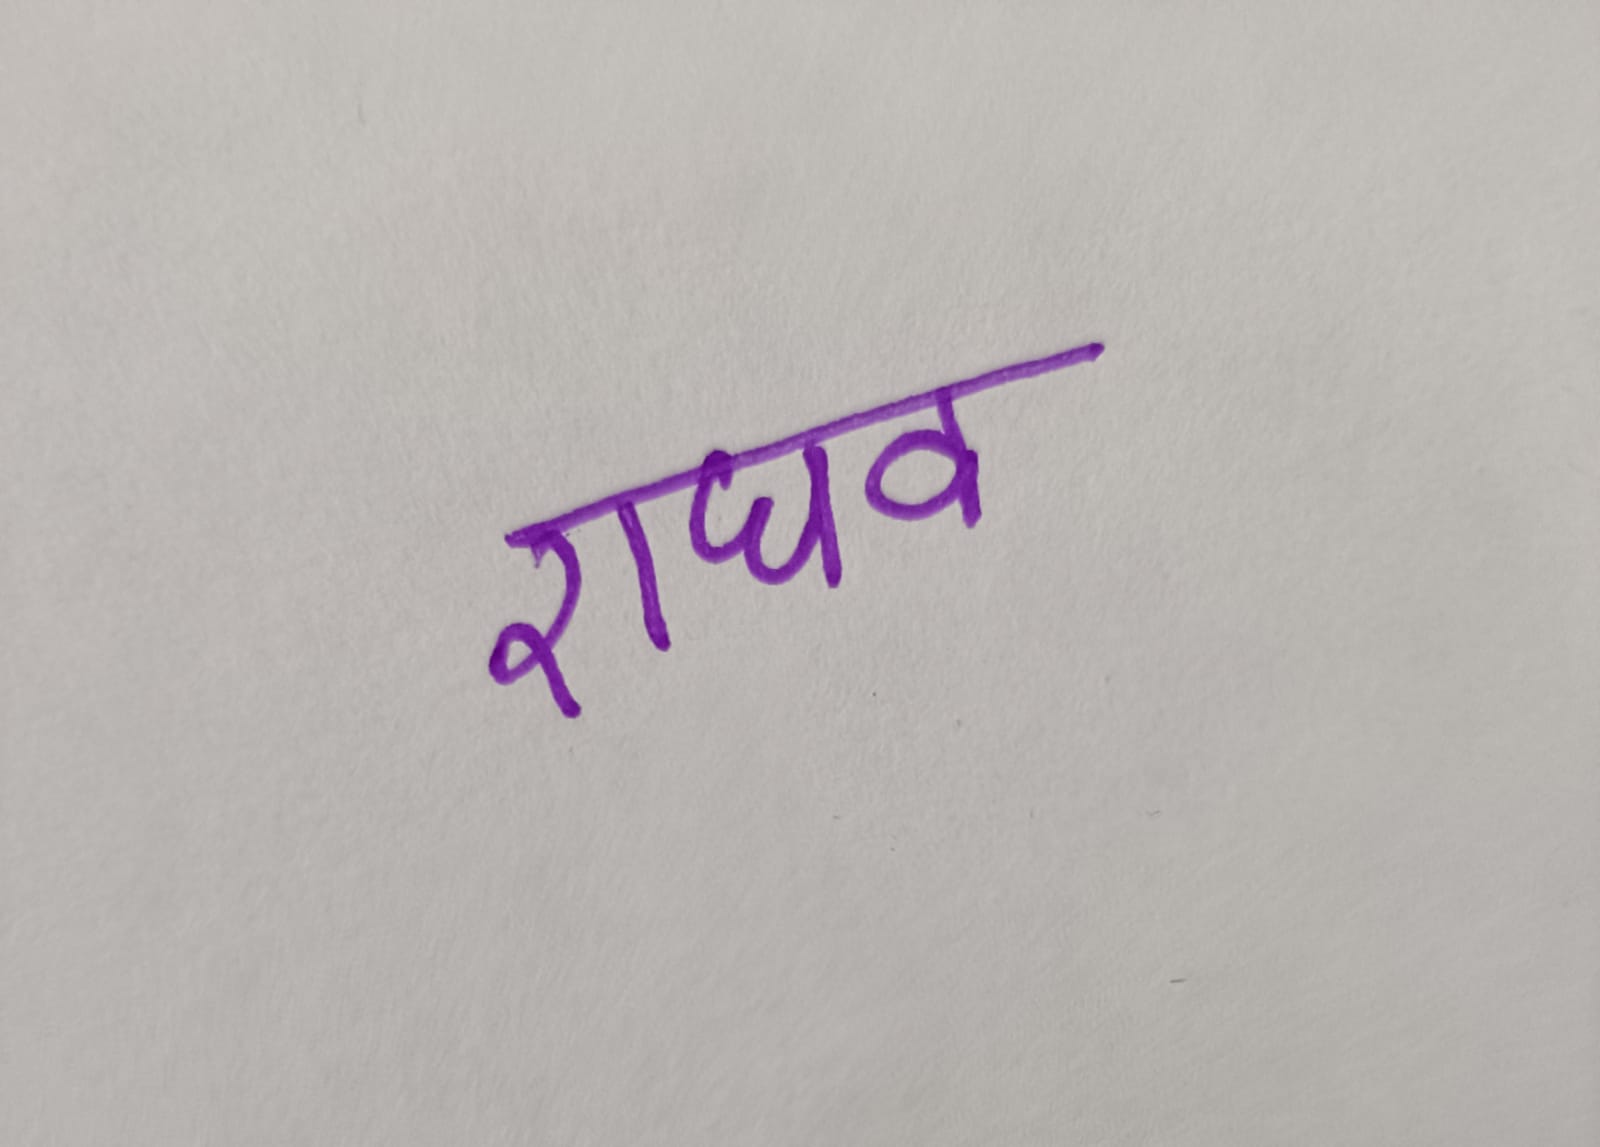 राघव